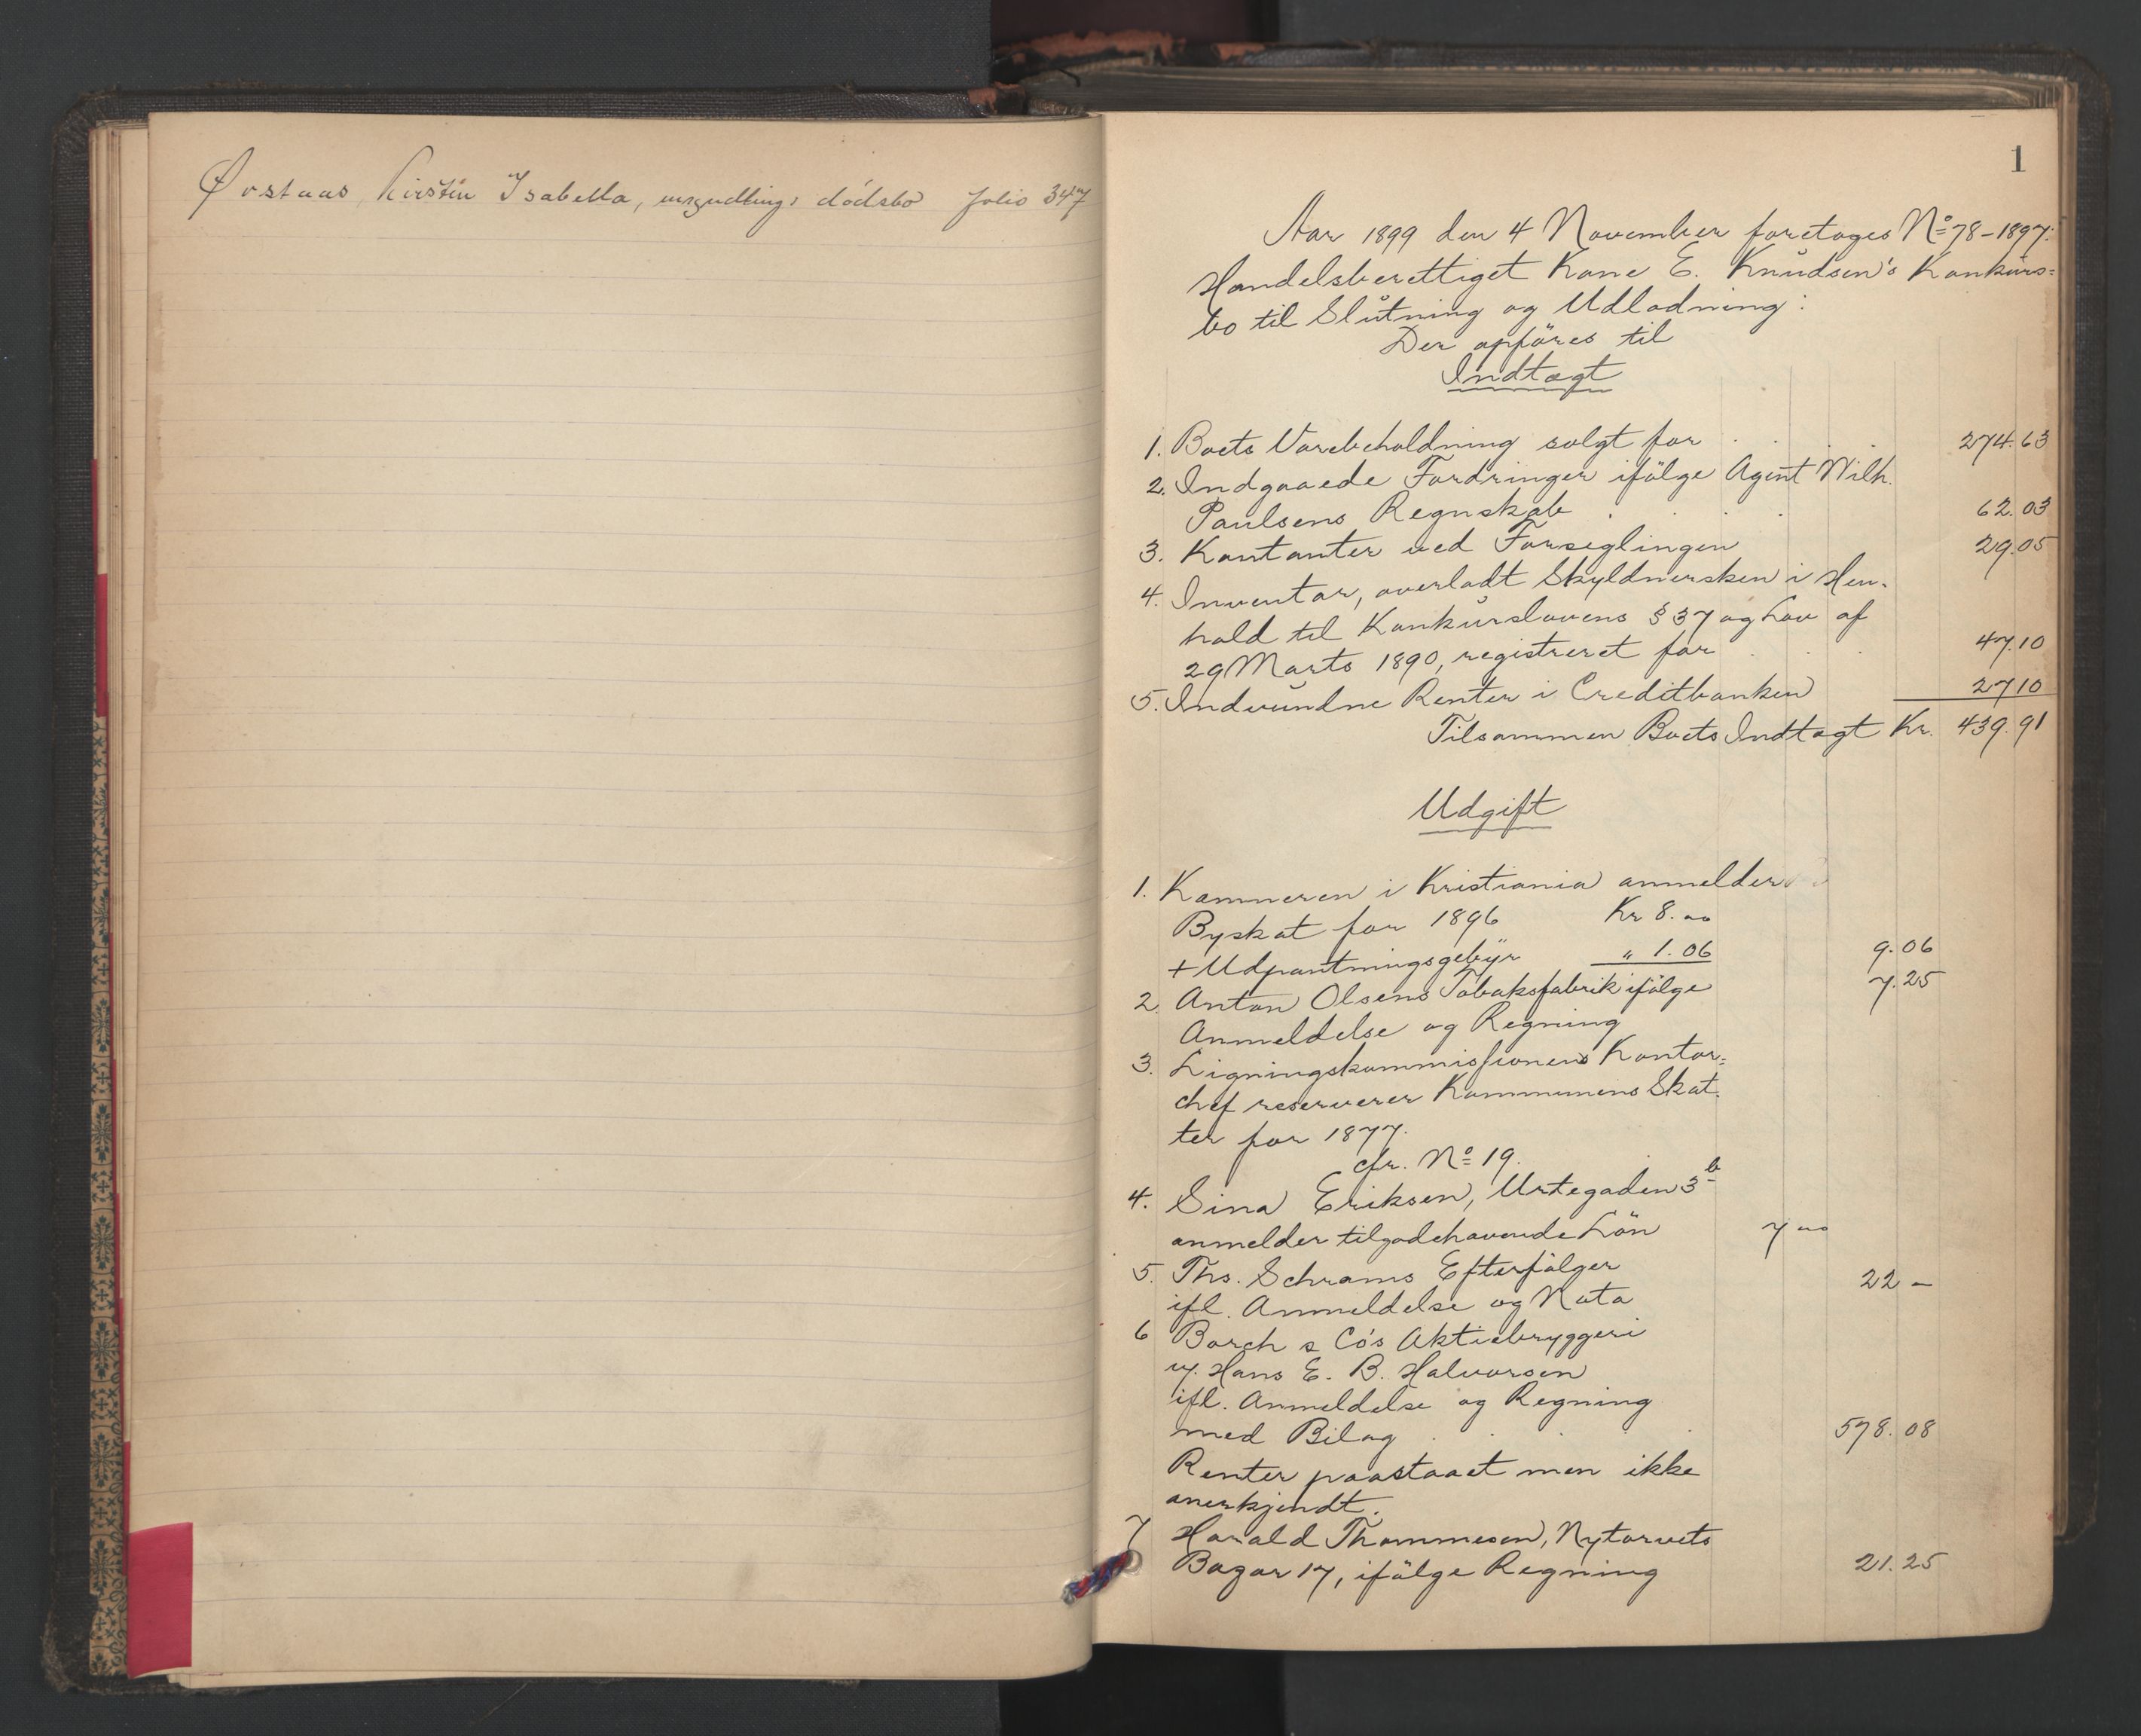 Østaas, Kirstin Isabella, umyndlings dødsbo folio 347
1
Aar 1899 den 4 November foretages No 78-1897:
Handelsberettiget Kone E. Knudsen's Konkurs=
bo til Slutning og Udlodning:
Der opföres til
Indtægt
1. Boets Varebeholdning solgt for . . . . 274.63
2. Indgaaede Fordringer ifölge Agent Wilh.
Paulsens Regnskab . . . . 62.03
3. Kontanter ved Forseglingen 29.05
4. Inventar, overladt Skyldnersken i Hen-
hold til Konkurslovens § 37 og Lov af
29 Marts 1890, registreret for . . . 47.10
5. Indvundne Renter i Creditbanken 27 10
Tilsammen Boets Indtægt Kr. 439.91
Udgift
1. Kæmneren i Kristiania anmelder
Byskat for 1896 Kr 8.00
+ Udpantningsgebyr " 1.06 9.06
2. Anton Olsens Tobaksfabrik ifölge 7.25
Anmeldelse og Regning
3. Ligningskommissionens Kontor=
chef reserverer Kommunens Skat-
ter for 1877.
cfr. No 19.
4. Sina Eriksen, Urtegaden 3b
anmelder tilgodehavende Lön 7 00
5. Ths. Schrams Efterfölger
ifl. Anmeldelse og Nota 22 -
6 Borch & Co's Aktiebryggeri
v/ Hans E. B. Halvorsen
ifl. Anmeldelse og Regning
med Bilag . . . . 578.08
Renter paastaaet men ikke
anerkjendt.
7 Harald Thommesen, Nytorvets
Bazar 17, ifölge Regning 21.25